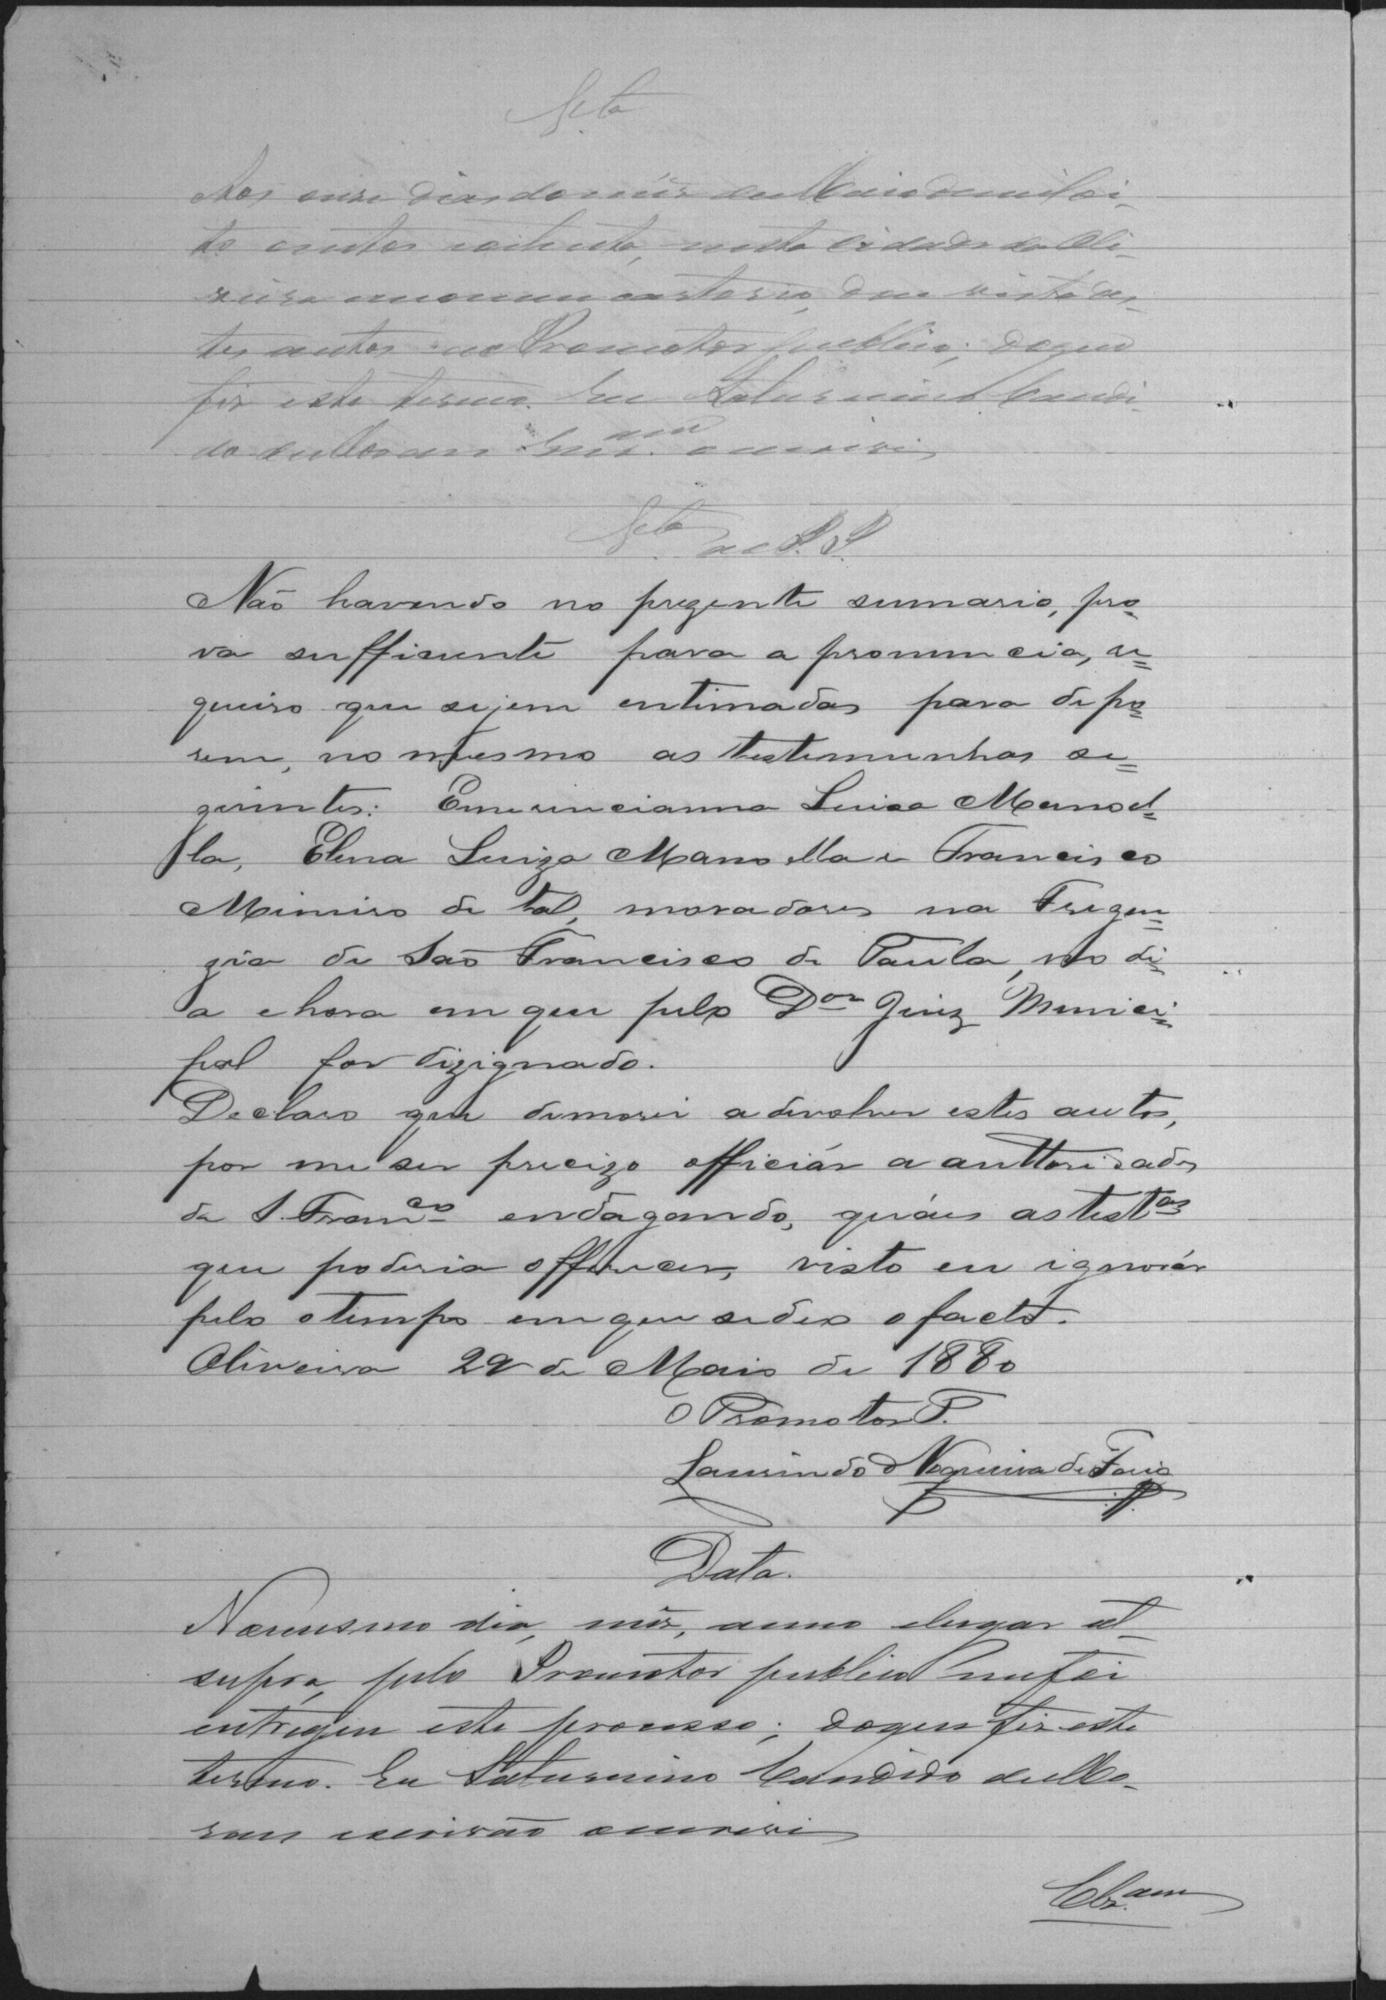 V.ta
Aos onze dias do mez de Maio de mil oi-
to centos e oitenta, nesta cidade da Oli-
veira em meu cartorio, dou vista des-
tes autos ao Promotor publico; do que
fiz este termo. Eu Saturnino Candi-
do de Moraes escrevi
V.ta ao P. P.
Não havendo no prezente sumario, pro=
va sufficiente para a pronuncia, re=
queiro que sejem entimadas para depo=
rem, no mesmo as testemunhas se=
guintes: Emerincianna Luisa Manoel=
la, Elena Luiza Manoella e Francisco
Mimiro de tal, moradores na Fregue=
zia de São Francisco de Paula, no di=
a e hora em que pelo Dor Juiz Munici=
pal for dizignado.
Declaro que demorei a devolver estes autos,
por me ser precizo officiár a authorisades
de S. Franco endagando, quáes as testas
que poderia offerecer, visto eu ignorár
pelo o tempo em que se deo o facto.
Oliveira 22 de Maio de 1880
O Promotor P.
Laurindo Nogueira de Faria
Data.
No mesmo dia, mez, anno e lugar ut-
supra, pelo Promotor publico me foi
entregue este processo; do que fiz este
termo. Eu Saturnino Candido de Mo-
raes escrivão o escrevi
Clz.am